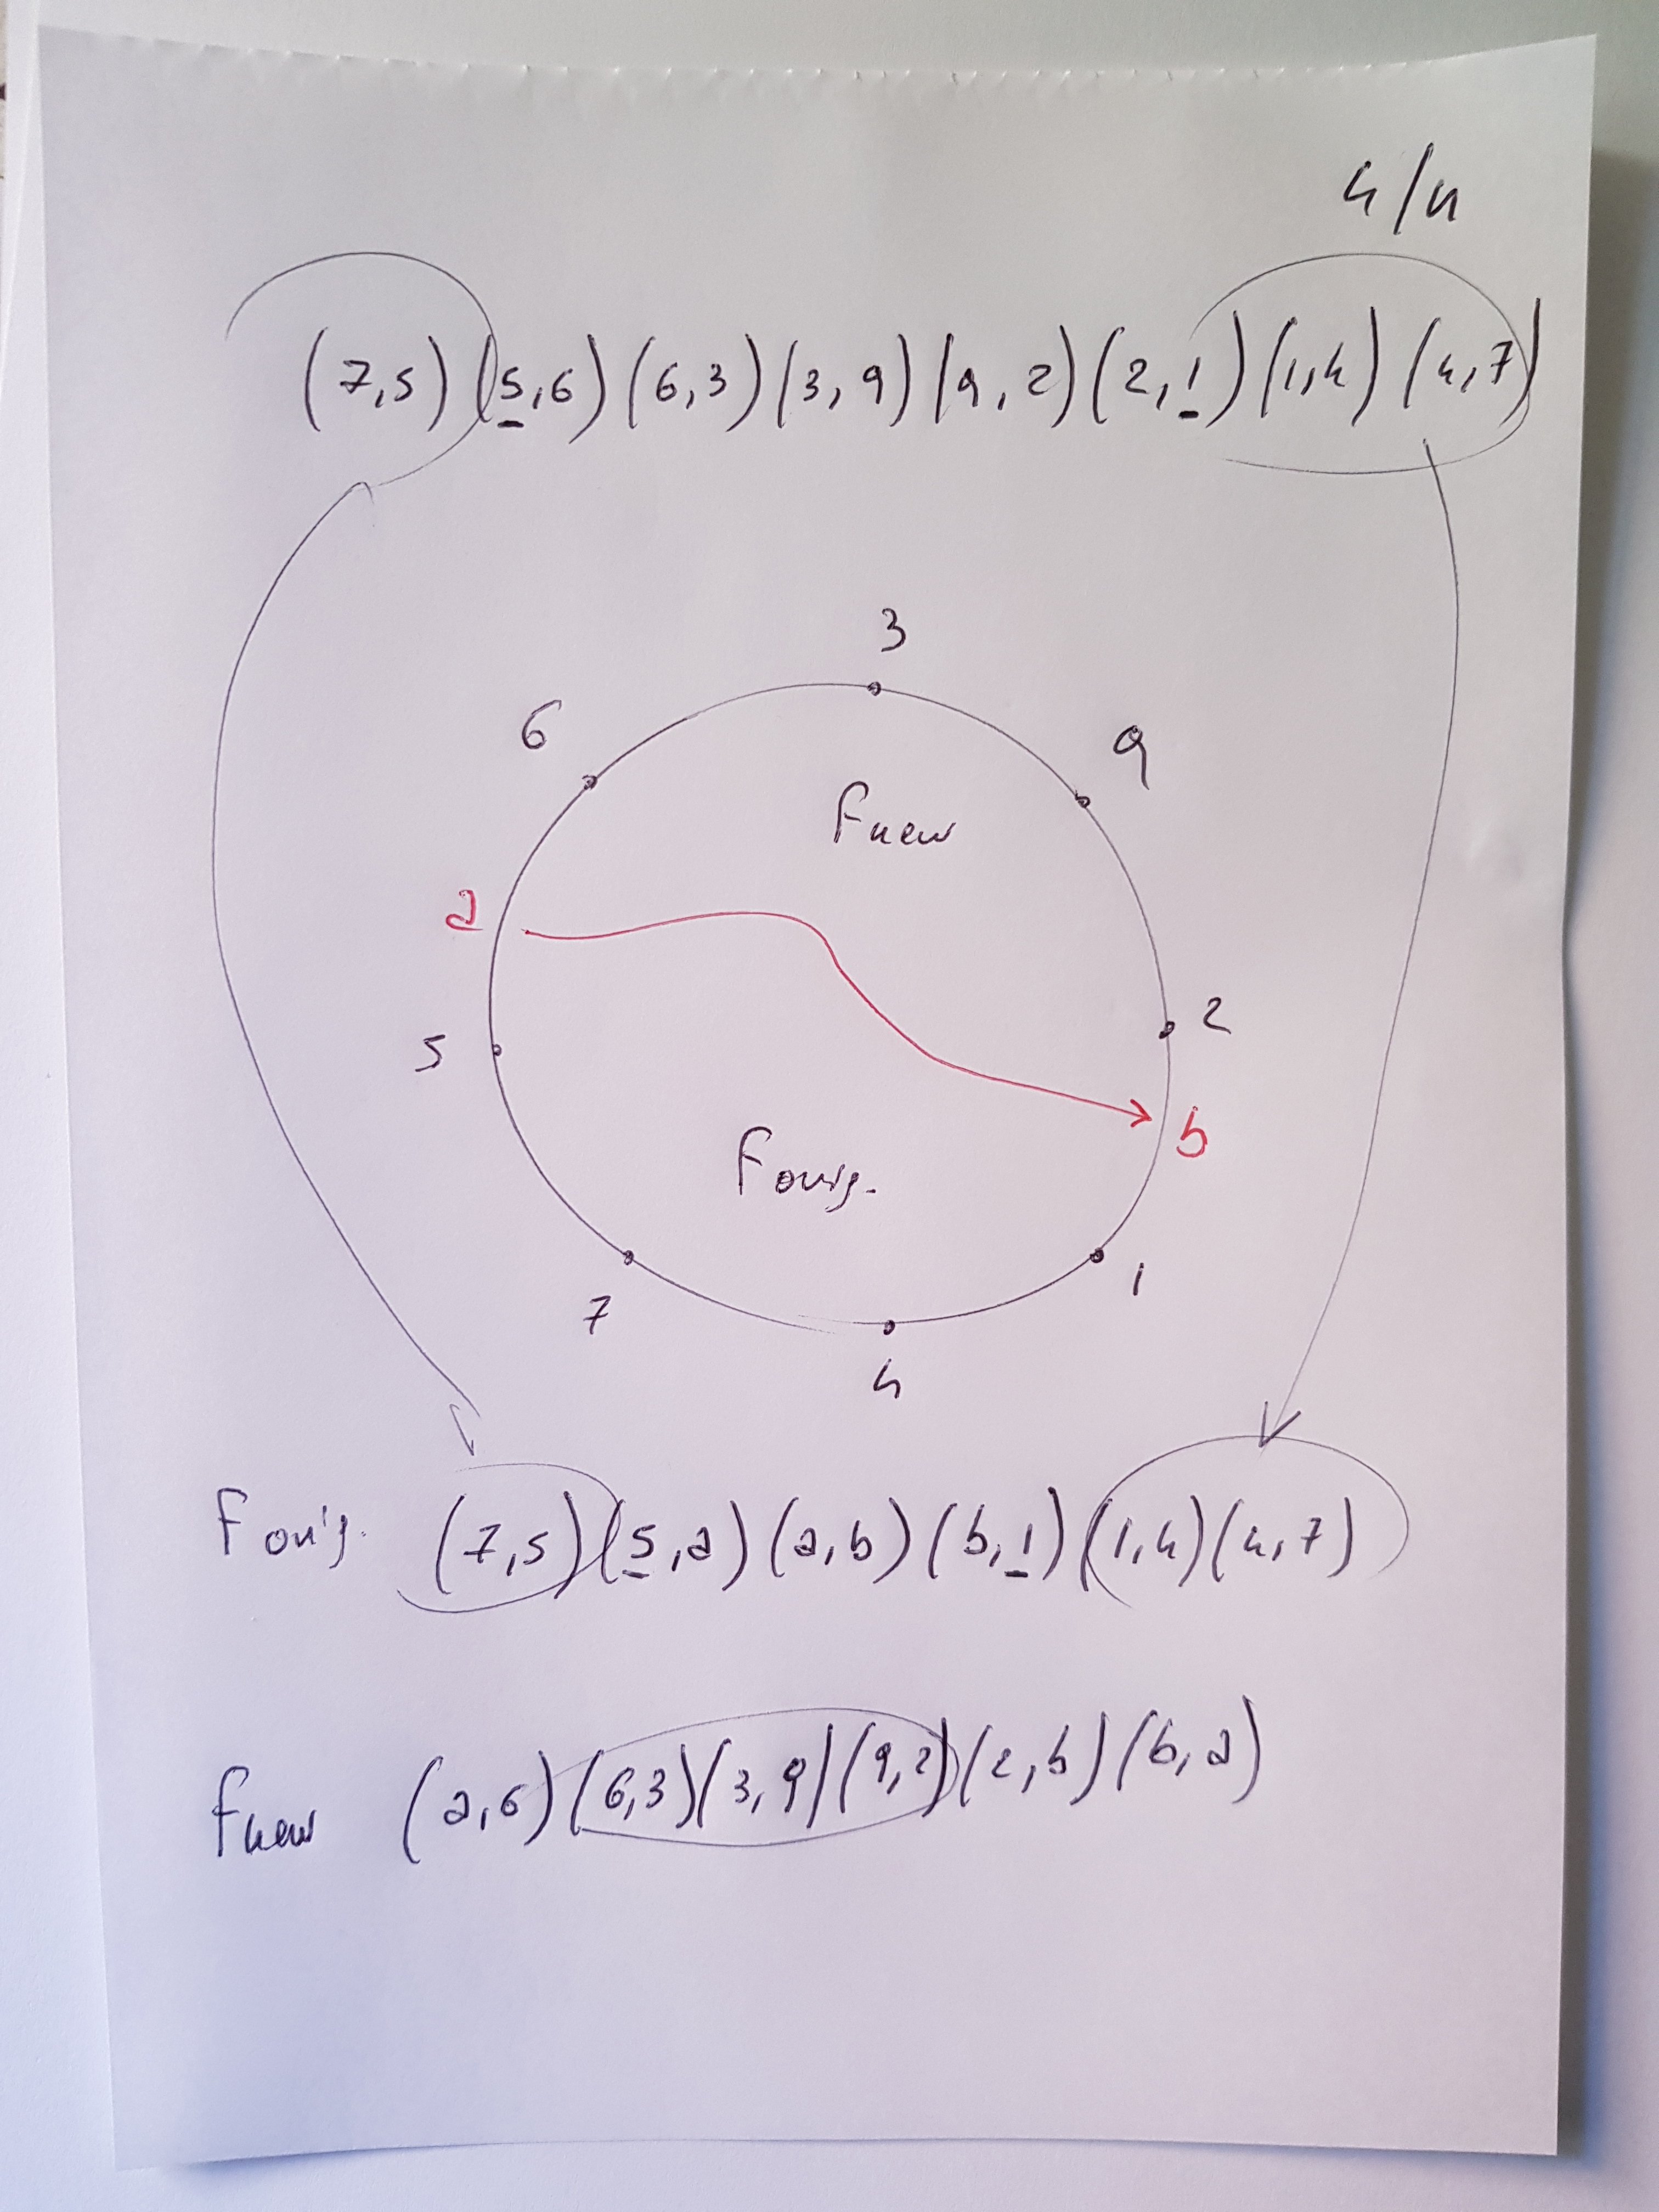 4/4
(7,5)(5,6)(6,3)(3,9)(9,2)(2,1)(1,4)(4,7)
3
6
9
Fnew
a
2
5
b
Forig.
1
7
4
Forig. (7,5)(5,a)(a,b)(b,1)(1,4)(4,7)
Fnew (a,6)(6,3)(3,9)(9,2)(2,b)(b,a)